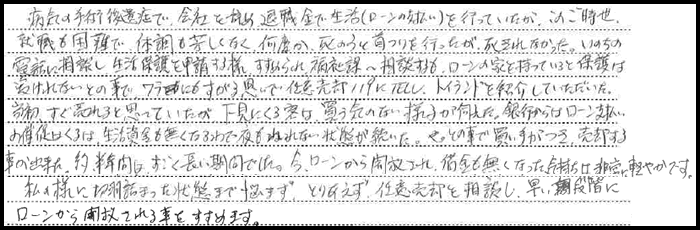 病気の手術後遺症で、会社を辞め退職金で生活(ローンの支払い)を行っていたが、このご時世、
就職も困難で、体調も芳しくなく、何度か、死のうと首つりを行ったが、死にきれなかった。いのちの
電話に相談し生活保護を申請する様、すすめられ福祉課へ相談するも、ローンの家を持っていると保護は
受けれないとの事で、ワラにもすがる思いで任意売却119にTELし、トライランドを紹介していただいた。
当初、すぐ売れると思っていたが、下見にくる客は、買う気のない様子が伺えた。銀行からはローン支払い
の催促はくるは、生活資金も無くなるわで夜もねれない状態が続いた。やっとの事で買い手がつき、売却する
事が出来た。約、半年間は、すごく長い期間でした。今、ローンから開放され、借金も無くなった気持ちは非常に軽やかです。
私の様に切羽詰まった状態まで悩まず、とりあえず、任意売却を相談し、早い段階に
ローンから開放される事をすすめます。